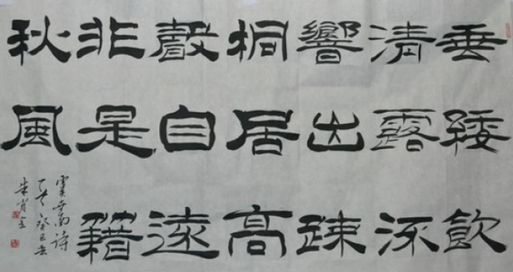 垂緌飲
清露流
響出疎
桐居高
聲自遠
非是藉
秋風
虞世南詩